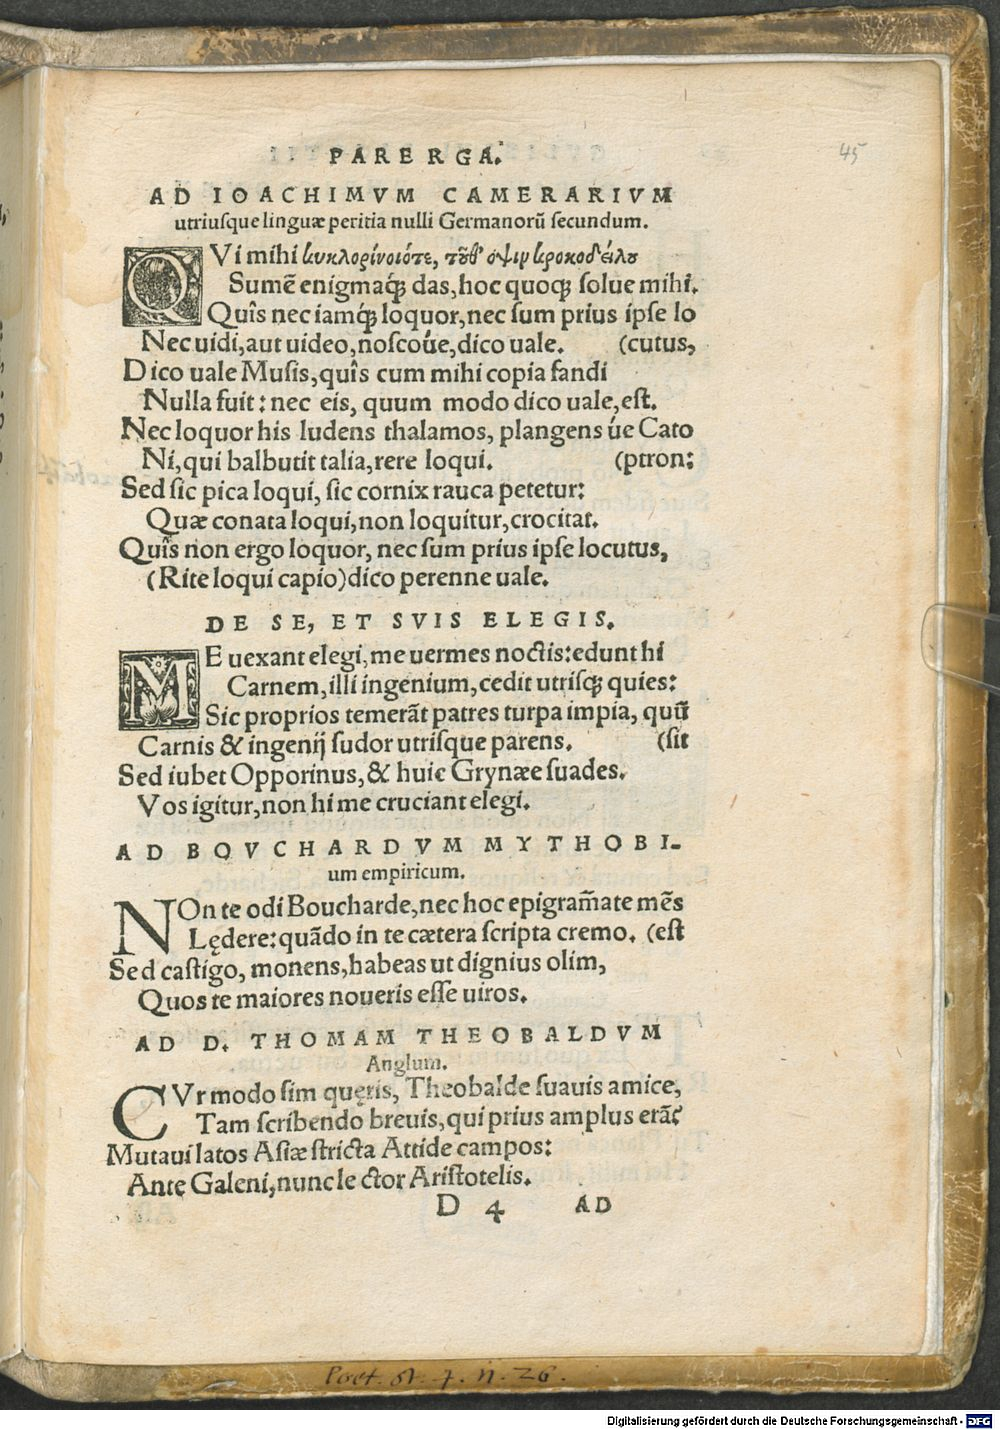 PARERGA.
45
AD IOACHIMVM CAMERARIVM
utriusque linguæ peritia nulli Germanorū secundum.
QVi mihi κυκλορίνοιότε, τοῦδ' ὀψιν κροκοδείλου
Sumē enigmaq́ꝫ das, hoc quoqꝫ solue mihi.
Quîs nec iamq́ꝫ loquor, nec sum prius ipse lo
Nec uidi, aut uideo, noscoúe, dico uale. (cutus,
Dico uale Musis, quîs cum mihi copia fandi
Nulla fuit: nec eis, quum modo dico uale, est.
Nec loquor his ludens thalamos, plangens úe Cato
Ni, qui balbutit talia, rere loqui. (ptron:
Sed sic pica loqui, sic cornix rauca petetur:
Quæ conata loqui, non loquitur, crocitat.
Quîs non ergo loquor, nec sum prius ipse locutus,
(Rite loqui capio) dico perenne uale.
DE SE, ET SVIS ELEGIS.
ME uexant elegi, me uermes noctis: edunt hi
Carnem, illi ingenium, cedit utrisqꝫ quies:
Sic proprios temerāt patres turpa impia, quū
Carnis & ingenij sudor utrisque parens. (sit
Sed iubet Opporinus, & huic Grynæe suades.
Vos igitur, non hi me cruciant elegi.
AD BOVCHARDVM MYTHOBI-
um empiricum.
NOn te odi Boucharde, nec hoc epigram̄ate mēs
Lędere: quādo in te cætera scripta cremo. (est
Sed castigo, monens, habeas ut dignius olim,
Quos te maiores noueris esse uiros.
AD D. THOMAM THEOBALDVM
Anglum.
CVr modo sim quęris, Theobalde suauis amice,
Tam scribendo breuis, qui prius amplus erā?
Mutaui latos Asiæ stricta Attide campos:
Ante Galeni, nunc lector Aristotelis.
D 4 AD
Poet. St. 7. n. 26.
Digitalisierung gefördert durch die Deutsche Forschungsgemeinschaft - DFG